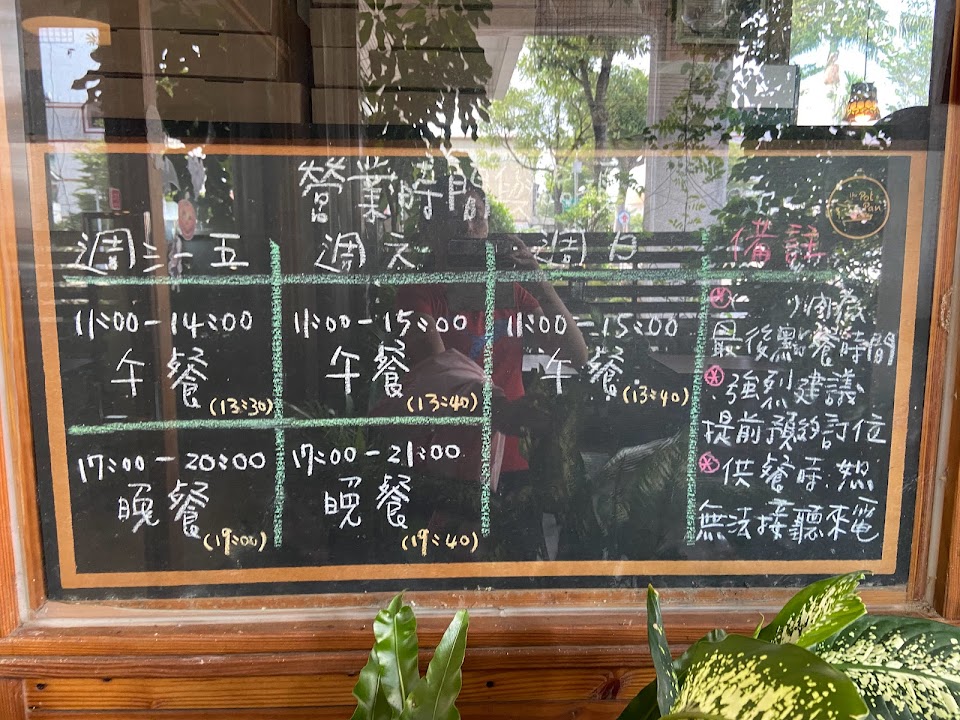 營業時間
週三-五
週六
週日
備註
11:00-14:00
午餐
(13:30)
11:00-15:00
午餐
(13:40)
11:00-15:00
午餐
(13:40)
17:00-20:00
晚餐
(19:00)
17:00-21:00
晚餐
(19:40)
最後點餐時間
強烈建議
提前預約訂位
供餐時.恕
無法接聽來電
Pot
Pan